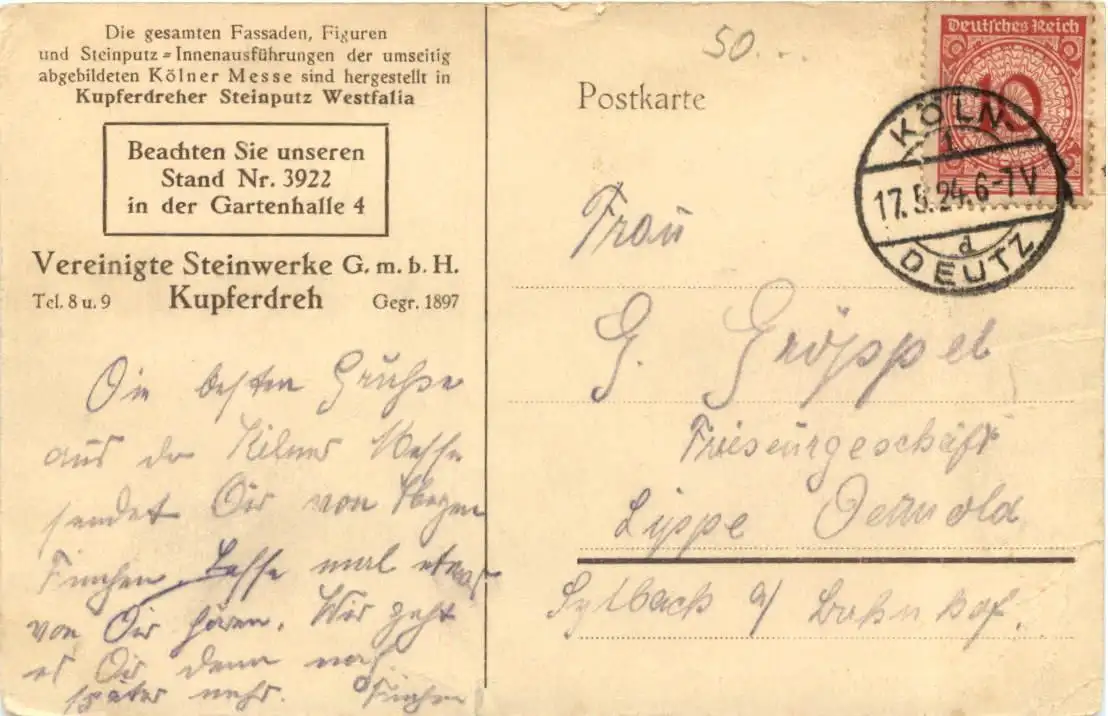 Die gesamten Fassaden, Figuren
und Steinputz=Innenausführungen der umseitig
abgebildeten Kölner Messe sind hergestellt in
Kupferdreher Steinputz Westfalia
Beachten Sie unseren
Stand Nr. 3922
in der Gartenhalle 4
Vereinigte Steinwerke G. m. b. H.
Tel. 8 u. 9 Kupferdreh Gegr. 1897
Die besten Grüße
aus der Kölner Messe
sendet Dir von Herzen
Finchen Lasse mal etwas
von Dir hören. Wie geht
es Dir denn noch
später mehr. Finchen
50...
Postkarte
Deutsches Reich
10
KÖLN-
1
17.5.24.6-7V
d
DEUTZ
Frau
G. Gröppel
Friseurgeschäft
Lippe Detmold
Sylbach a/ Bahnhof.